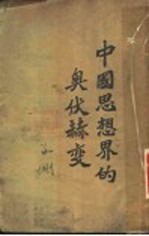 中國思想界的
奧伏赫變